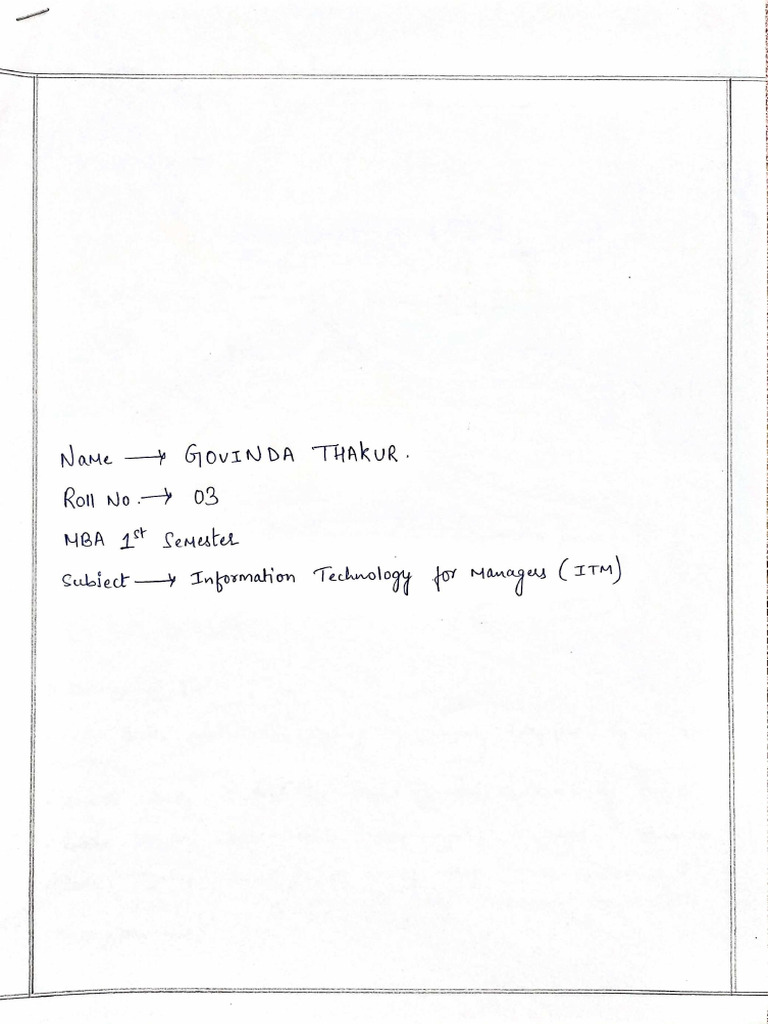 Name → GOVINDA THAKUR.
Roll No. → 03
MBA 1st Semester
Subject → Information Technology for Managers (ITM)